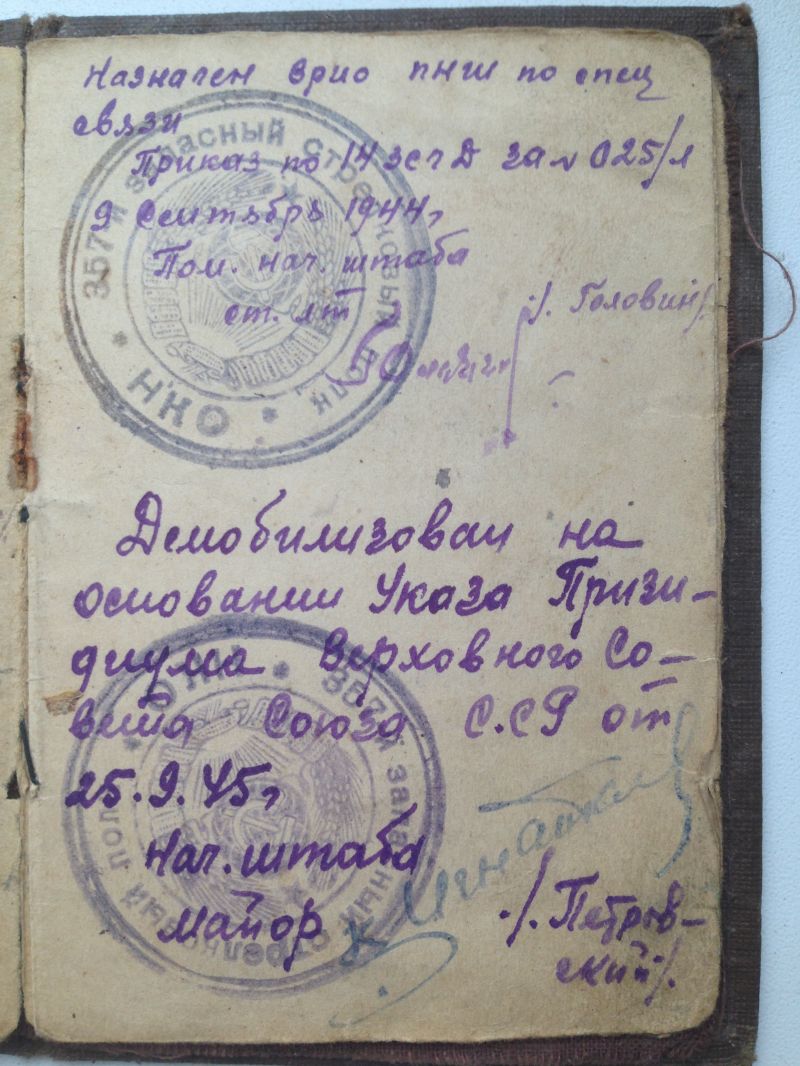 Назначен врио пнш по спец
связи
Приказ по 14 зсгд за № 025/л
9 Сентябрь 1944г
Пом. нач. штаба
ст. лт
/. Головин/.
357й запасный стрелковый полк
НКО
Демобилизован на
основании Указа Призи-
диума Верховного Со-
вета Союза С.СР от
25.9.45г
Нач. штаба
майор
./. Петров-
ский/.
357й запасный стрелковый полк
НКО